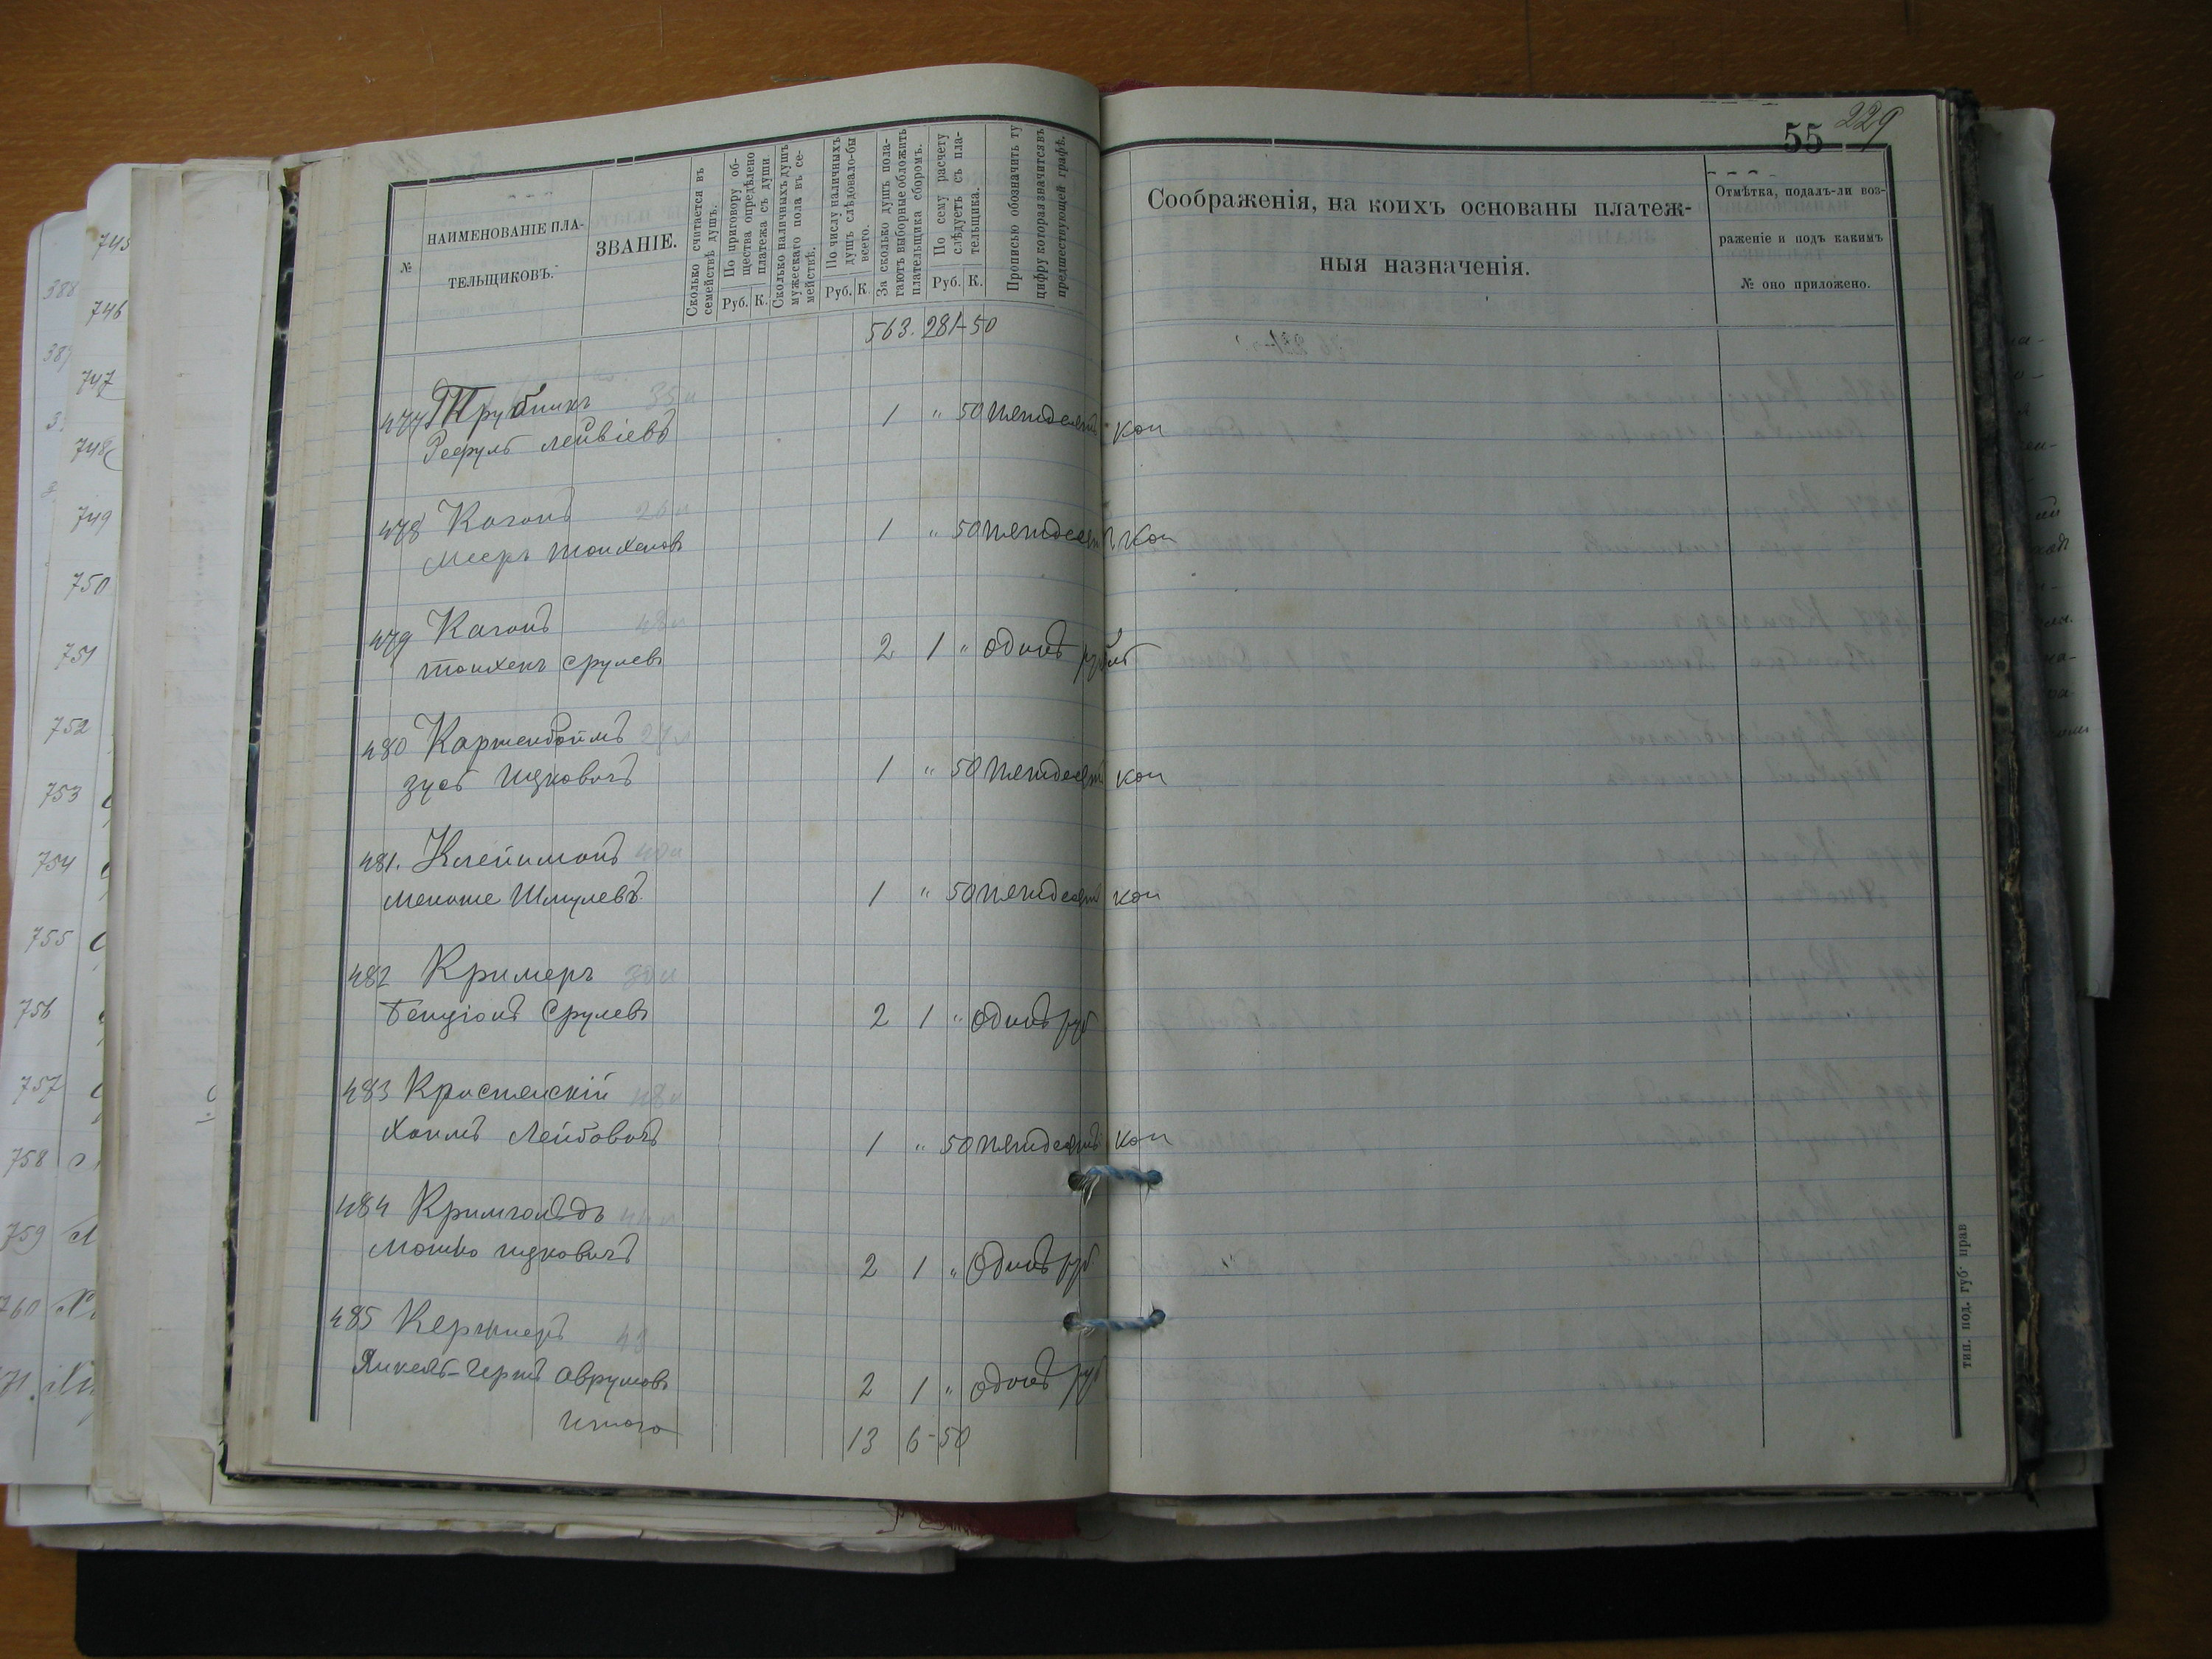 745
746
747
748
749
750
751
752
753
754
755
756
757
758
759
760
№
НАИМЕНОВАНІЕ ПЛА-
ТЕЛЬЩИКОВЪ.
ЗВАНІЕ.
Сколько считается въ
семействѣ душъ.
По приговору об-
щества опредѣлено
платежа съ души
Руб. К.
Сколько наличныхъ душъ
мужескаго пола въ се-
мействѣ.
По числу наличныхъ
душъ слѣдовало-бы
всего.
Руб. К
За сколько душъ пола-
гаютъ выборные обложить
плательщика сборомъ.
По сему расчету
слѣдуетъ съ пла-
тельщика.
Руб. К.
Прописью обозначить ту
цифру которая значится въ
предшествующей графѣ.
563. 281-50
477 Трубникъ 35 л
Рефуль Лейвіевъ 1 " 50 пятдесятъ коп
478 Кагонъ 26 л
Мееръ Тонхелов 1 " 50 пятдесят коп
479 Кагонъ 48 л
Тонхелъ Срулев 2 1 " одинъ рубль
480 Картенбоймъ
Зусь Ицковичъ 1 " 50 пятдесят коп
481. Клейнманъ 40 л
Менаше Шмулевъ 1 " 50 пятдесят коп
482 Кримеръ 30 л
Бенціонъ Срулев 2 1 " одинъ руб
483 Краснянскій 48 л
Хаимъ Лейбовичъ 1 " 50 пятдесятъ коп
484 Кримгольдъ
Мошко Ицковичъ 2 1 " Одинъ руб
485 Кержнеръ 43
Янкель-Герш Аврумов 2 1 " одинъ руб
Итого 13 6-50
55 229
Соображенія, на коихъ основаны платеж-
ныя назначенія.
Отмѣтка, подалъ-ли воз-
раженіе и подъ какимъ
№ оно приложено.
тип. под. губ. прав